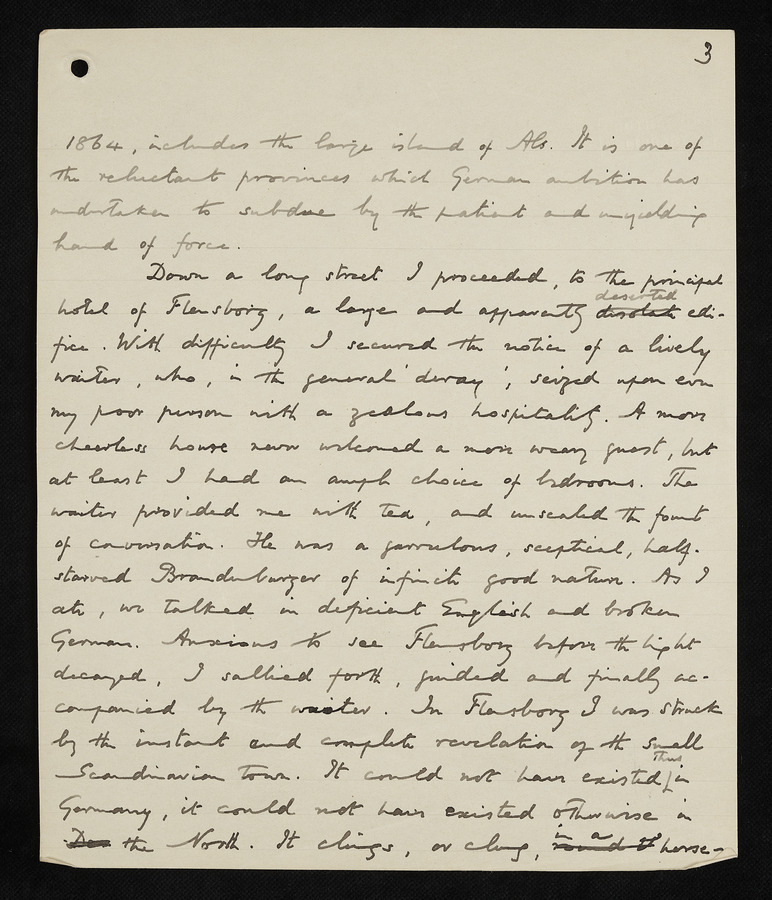 3
1864, includes the large island of Als. It is one of
the reluctant provinces which German ambition has
undertaken to subdue by the patient and unyielding
hand of force.
Down a long street I proceeded, to the principal
deserted
hotel of Flensborg, a large and apparently desolate edi-
fice. With difficulty I secured the notice of a lively
waiter, who, in the general 'deray', seized upon even
my poor person with a zealous hospitality. A more
cheerless house never welcomed a more weary guest, but
at least I had an ample choice of bedrooms. The
waiter provided me with tea, and unsealed the fount
of conversation. He was a garrulous, sceptical, half-
starved Brandenburger of infinite good nature. As I
ate, we talked in deficient English and broken
German. Anxious to see Flensborg before the light
decayed, I sallied forth, guided and finally ac-
companied by the waiter. In Flensborg I was struck
by the instant and complete revelation of the small
thus
Scandinavian town. It could not have existed in
Germany, it could not have existed otherwise in
in a
Den the North. It clings, or clung, round of horse-